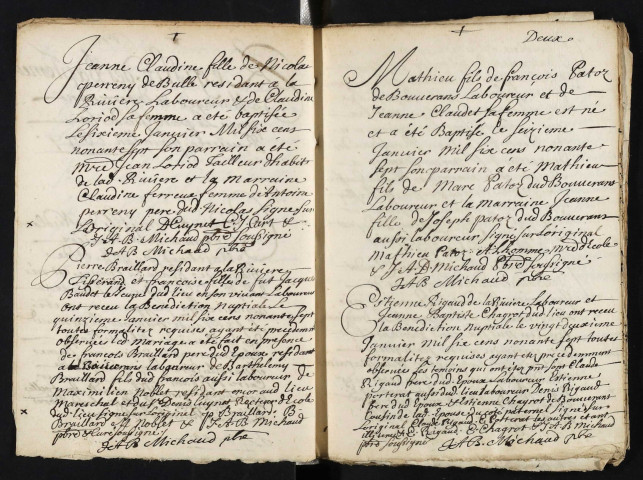 Jeanne Claudine fille de Nicolas
perreny de Bulle residant a la
Riviere Laboureur & de Claudine
Loriod sa femme a été baptisée
Le sixieme Janvier Mil six cens
nonante sept son parrain a été
Mre Jean Loriod Tailleur d'habit
de lad. Riviere et la marraine
Claudine ferreux femme d'Antoine
perreny pere dud Nicolas signé sur
Loriginal D Cuynet
& J A B Michaud pbre soussigné
J A B Michaud pbre
Pierre Braillard residant a la Riviere
et francoise fille de fut Jacque
Baudet le jeune dud lieu en son vivant Laboureur
ont receu la Benediction Nuptiale Le
quinzieme Janvier mil six cens nonante sept
toutes formalitez requises ayant été precedemment
observées led mariage a été fait en presence
de francois Braillard pere dud Epoux residant
a la Laboureur de Barthelemy
Braillard fils dud francois aussi laboureur de
Maximilien Noblet residant aud lieu
Mareschal et de Denis Cuynet Recteur d'Ecole
dud lieu signé sur Loriginal Braillard B
Braillard M Noblet & J A B Michaud
pbre & curé soussigné
J A B Michaud pbre
Deux
Mathieu fils de françois Patoz
de Bouverans Laboureur et de
Jeanne Claudet sa femme est né
et a été Baptisé le seizieme
Janvier mil six cens nonante
sept son parrain a été Mathieu
fils de Marc Patoz dud Bouverans
Laboureur et la marraine Jeanne
fille de Joseph patoz dud Bouverans
aussi laboureur signé sur Loriginal
Mathieu Patoz Mre d'Ecole
& J A B Michaud Pbre soussigné
J A B Michaud pbre
Estienne Rigaud de la Riviere Laboureur et
Jeanne Baptiste Chagrot dud lieu ont receu
la Benediction nuptiale le vingt deuxieme
Janvier mil six cens nonante sept toutes
formalitez requises ayant été precedemment
observées les temoins qui ont été sont Claude
Rigaud pere dud Epoux Laboureur Estienne
aud lieu Laboureur Denis Rigaud
frere dud Epoux Estienne Chagrot de Bouverans
Cousin de lad Epouse du coté paternel signé sur
Loriginal Claude Rigaud
Rigaud E Chagrot & J A B Michaud
pbre soussigné
J A B Michaud pbre